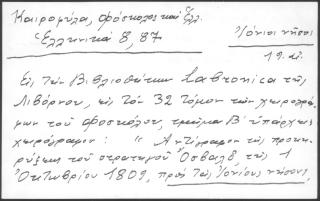 Καιροφύλα, Φόσκολος και Ἑλλ.
Ἑλληνικά 8, 87
Ἰόνιοι νῆσοι
19 αἰ.
Εἰς τὴν Βιβλιοθήκην Labronica τῆς
Λιβόρνου, εἰς τὸν 32 τόμον τῶν χειρογρά-
φων τοῦ Φοσκόλου, τμῆμα Β' ὑπάρχει
χειρόγραφον: " Ἀντίγραφον τῆς προκη-
ρύξεως τοῦ στρατηγοῦ Ὄσβαλδ, τῆς 1
Ὀκτωβρίου 1809, πρὸς τοὺς Ἰονίους νήσους,